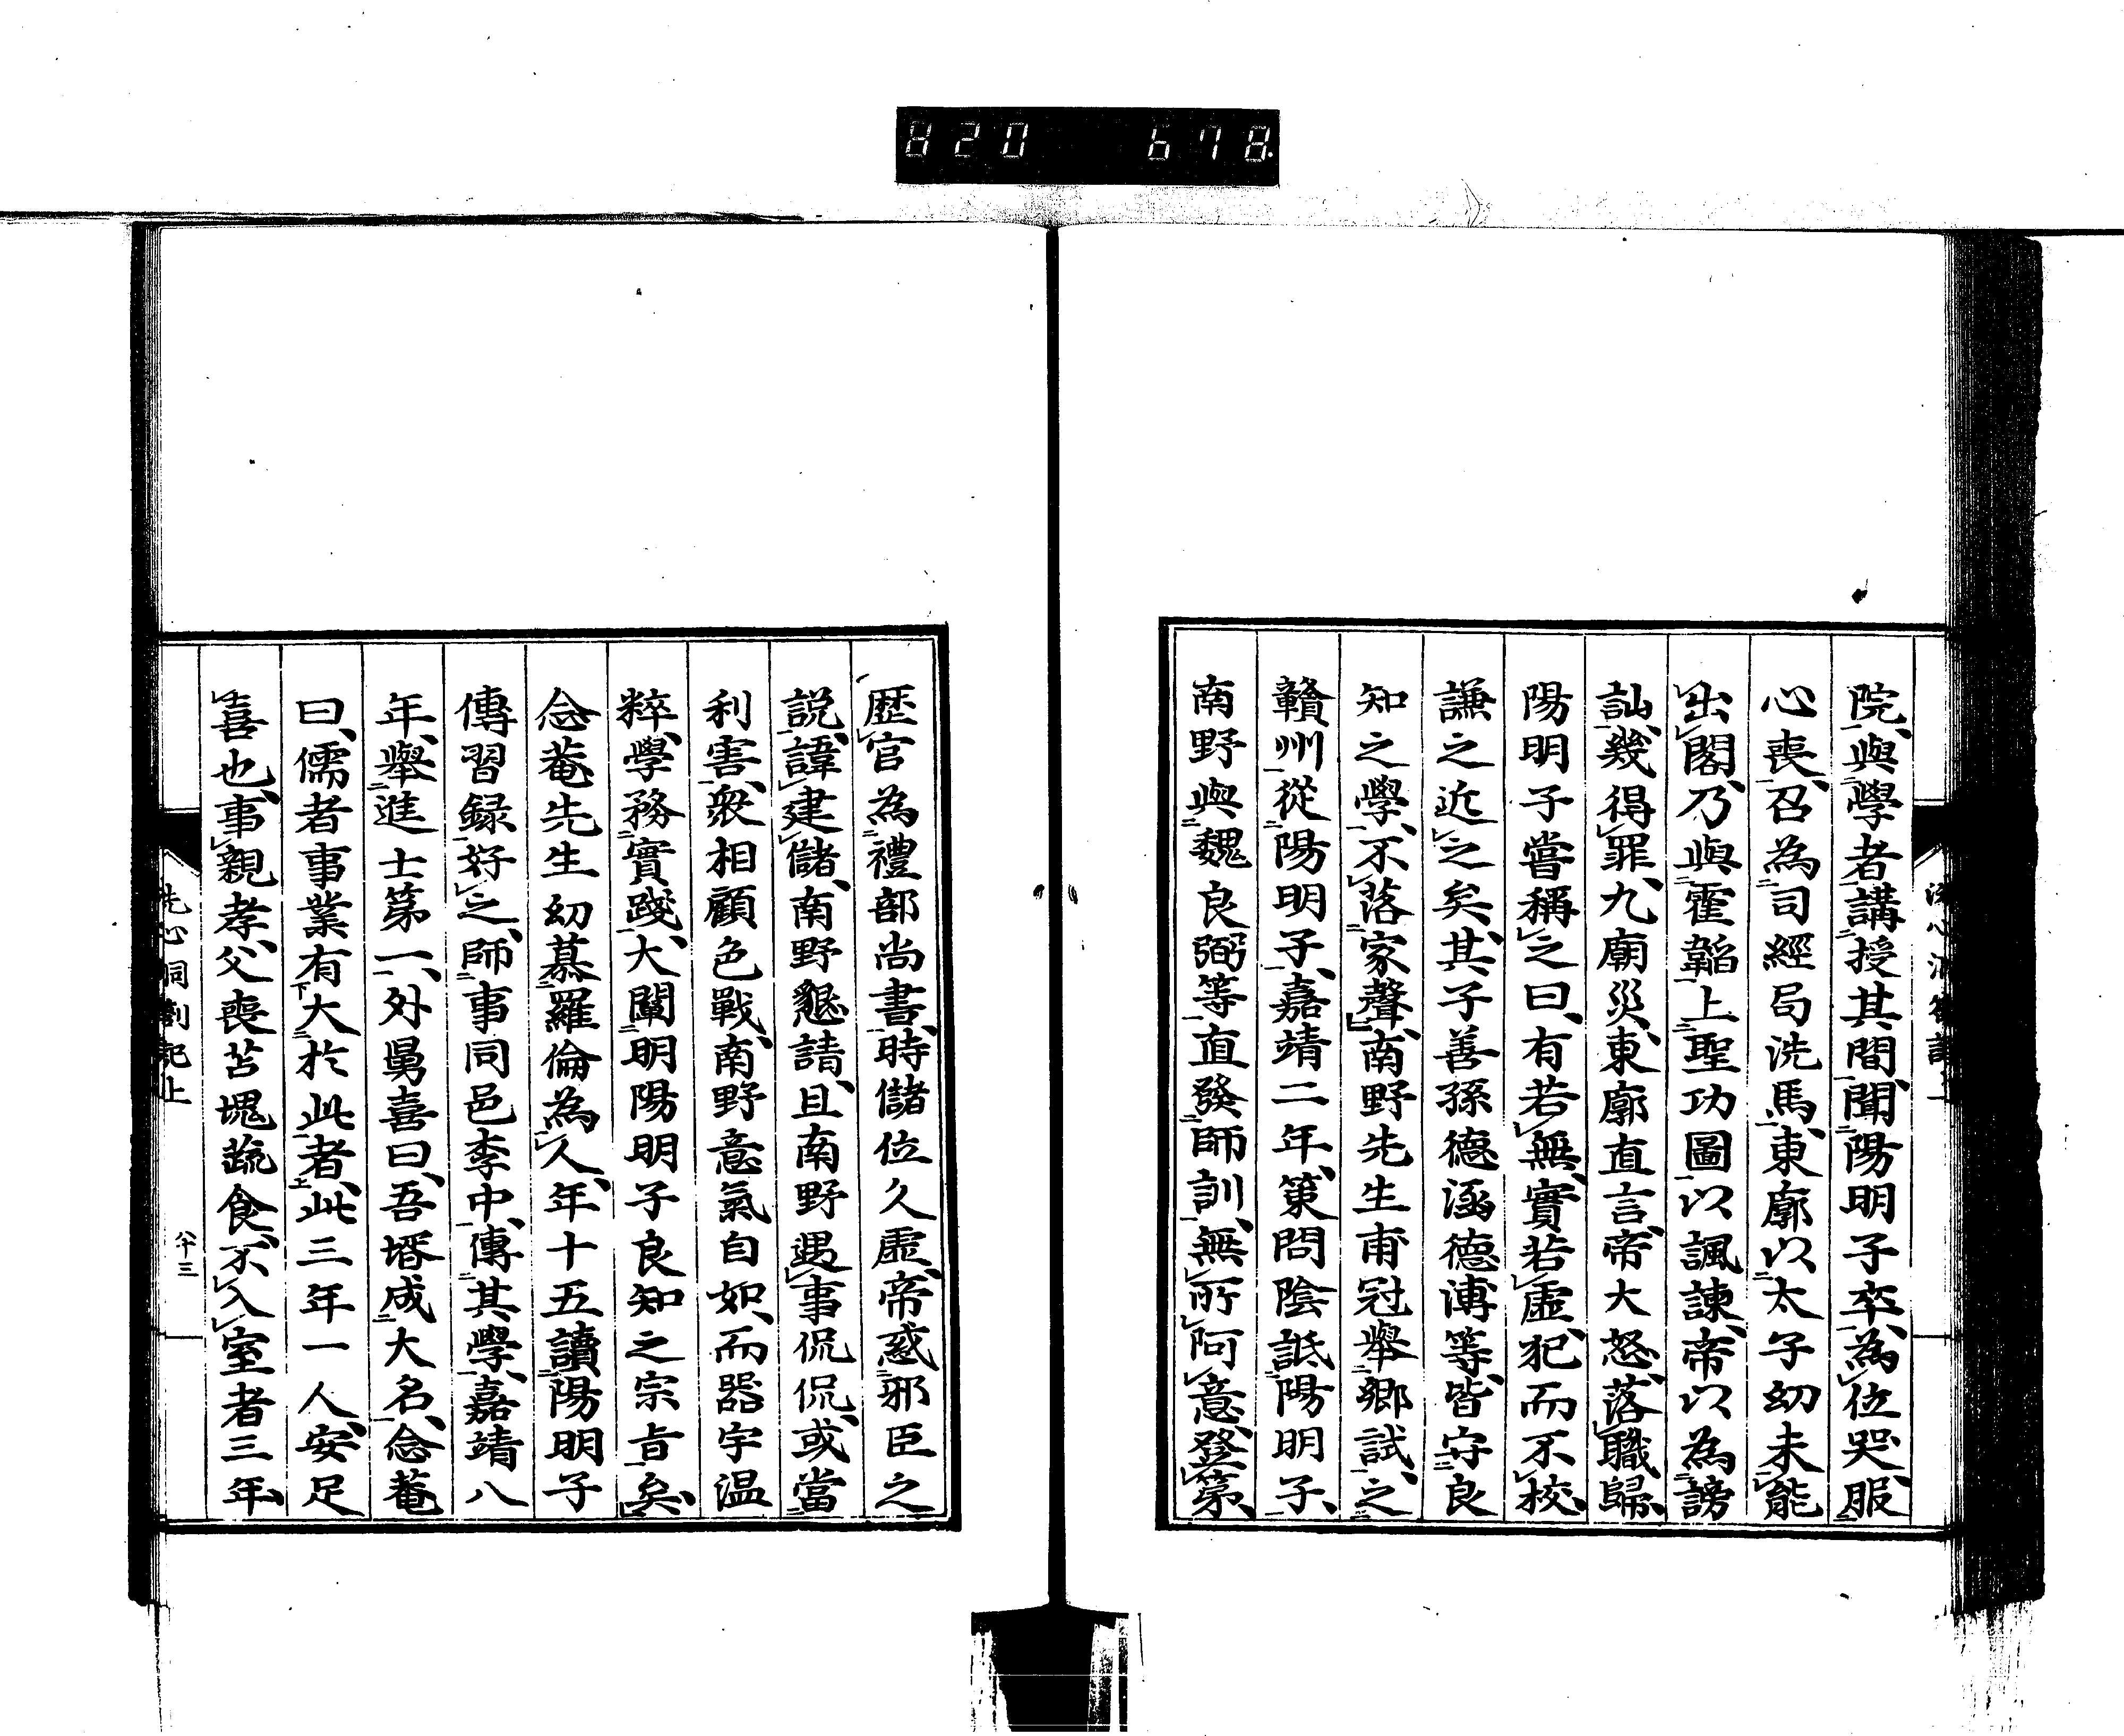 820 678
院、與學者講授其間、聞陽明子卒、為位哭、服
心喪、召為司經局洗馬、東廓以太子幼未能
出閣、乃與霍韜上聖功圖以諷諫、帝以為謗
訕、幾得罪、九廟災、東廓直言、帝大怒、落職歸、
陽明子嘗稱之曰、有若無、實若虛、犯而不校、
謙之近之矣、其子善孫德涵德溥等、皆守良
知之學、不落家聲、南野先生甫冠舉鄉試、之
贛州從陽明子、嘉靖二年、策問陰詆陽明子、
南野與魏良弼等直發師訓、無所阿意、登第、
歷官為禮部尚書、時儲位久虛、帝惑邪臣之
説、諱建儲、南野懇請、且南野遇事侃侃、或當
利害、衆相顧色戰、南野意氣自如、而器宇温
粹、學務實踐、大闡明陽明子良知之宗旨矣、
念菴先生幼慕羅倫為人、年十五讀陽明子
傳習録好之、師事同邑李中、傳其學、嘉靖八
年、舉進士第一、外舅喜曰、吾壻成大名、念菴
曰、儒者事業有大於此者、此三年一人、安足
喜也、事親孝、父喪苫塊蔬食、不入室者三年、
洗心洞劄記上
八十三